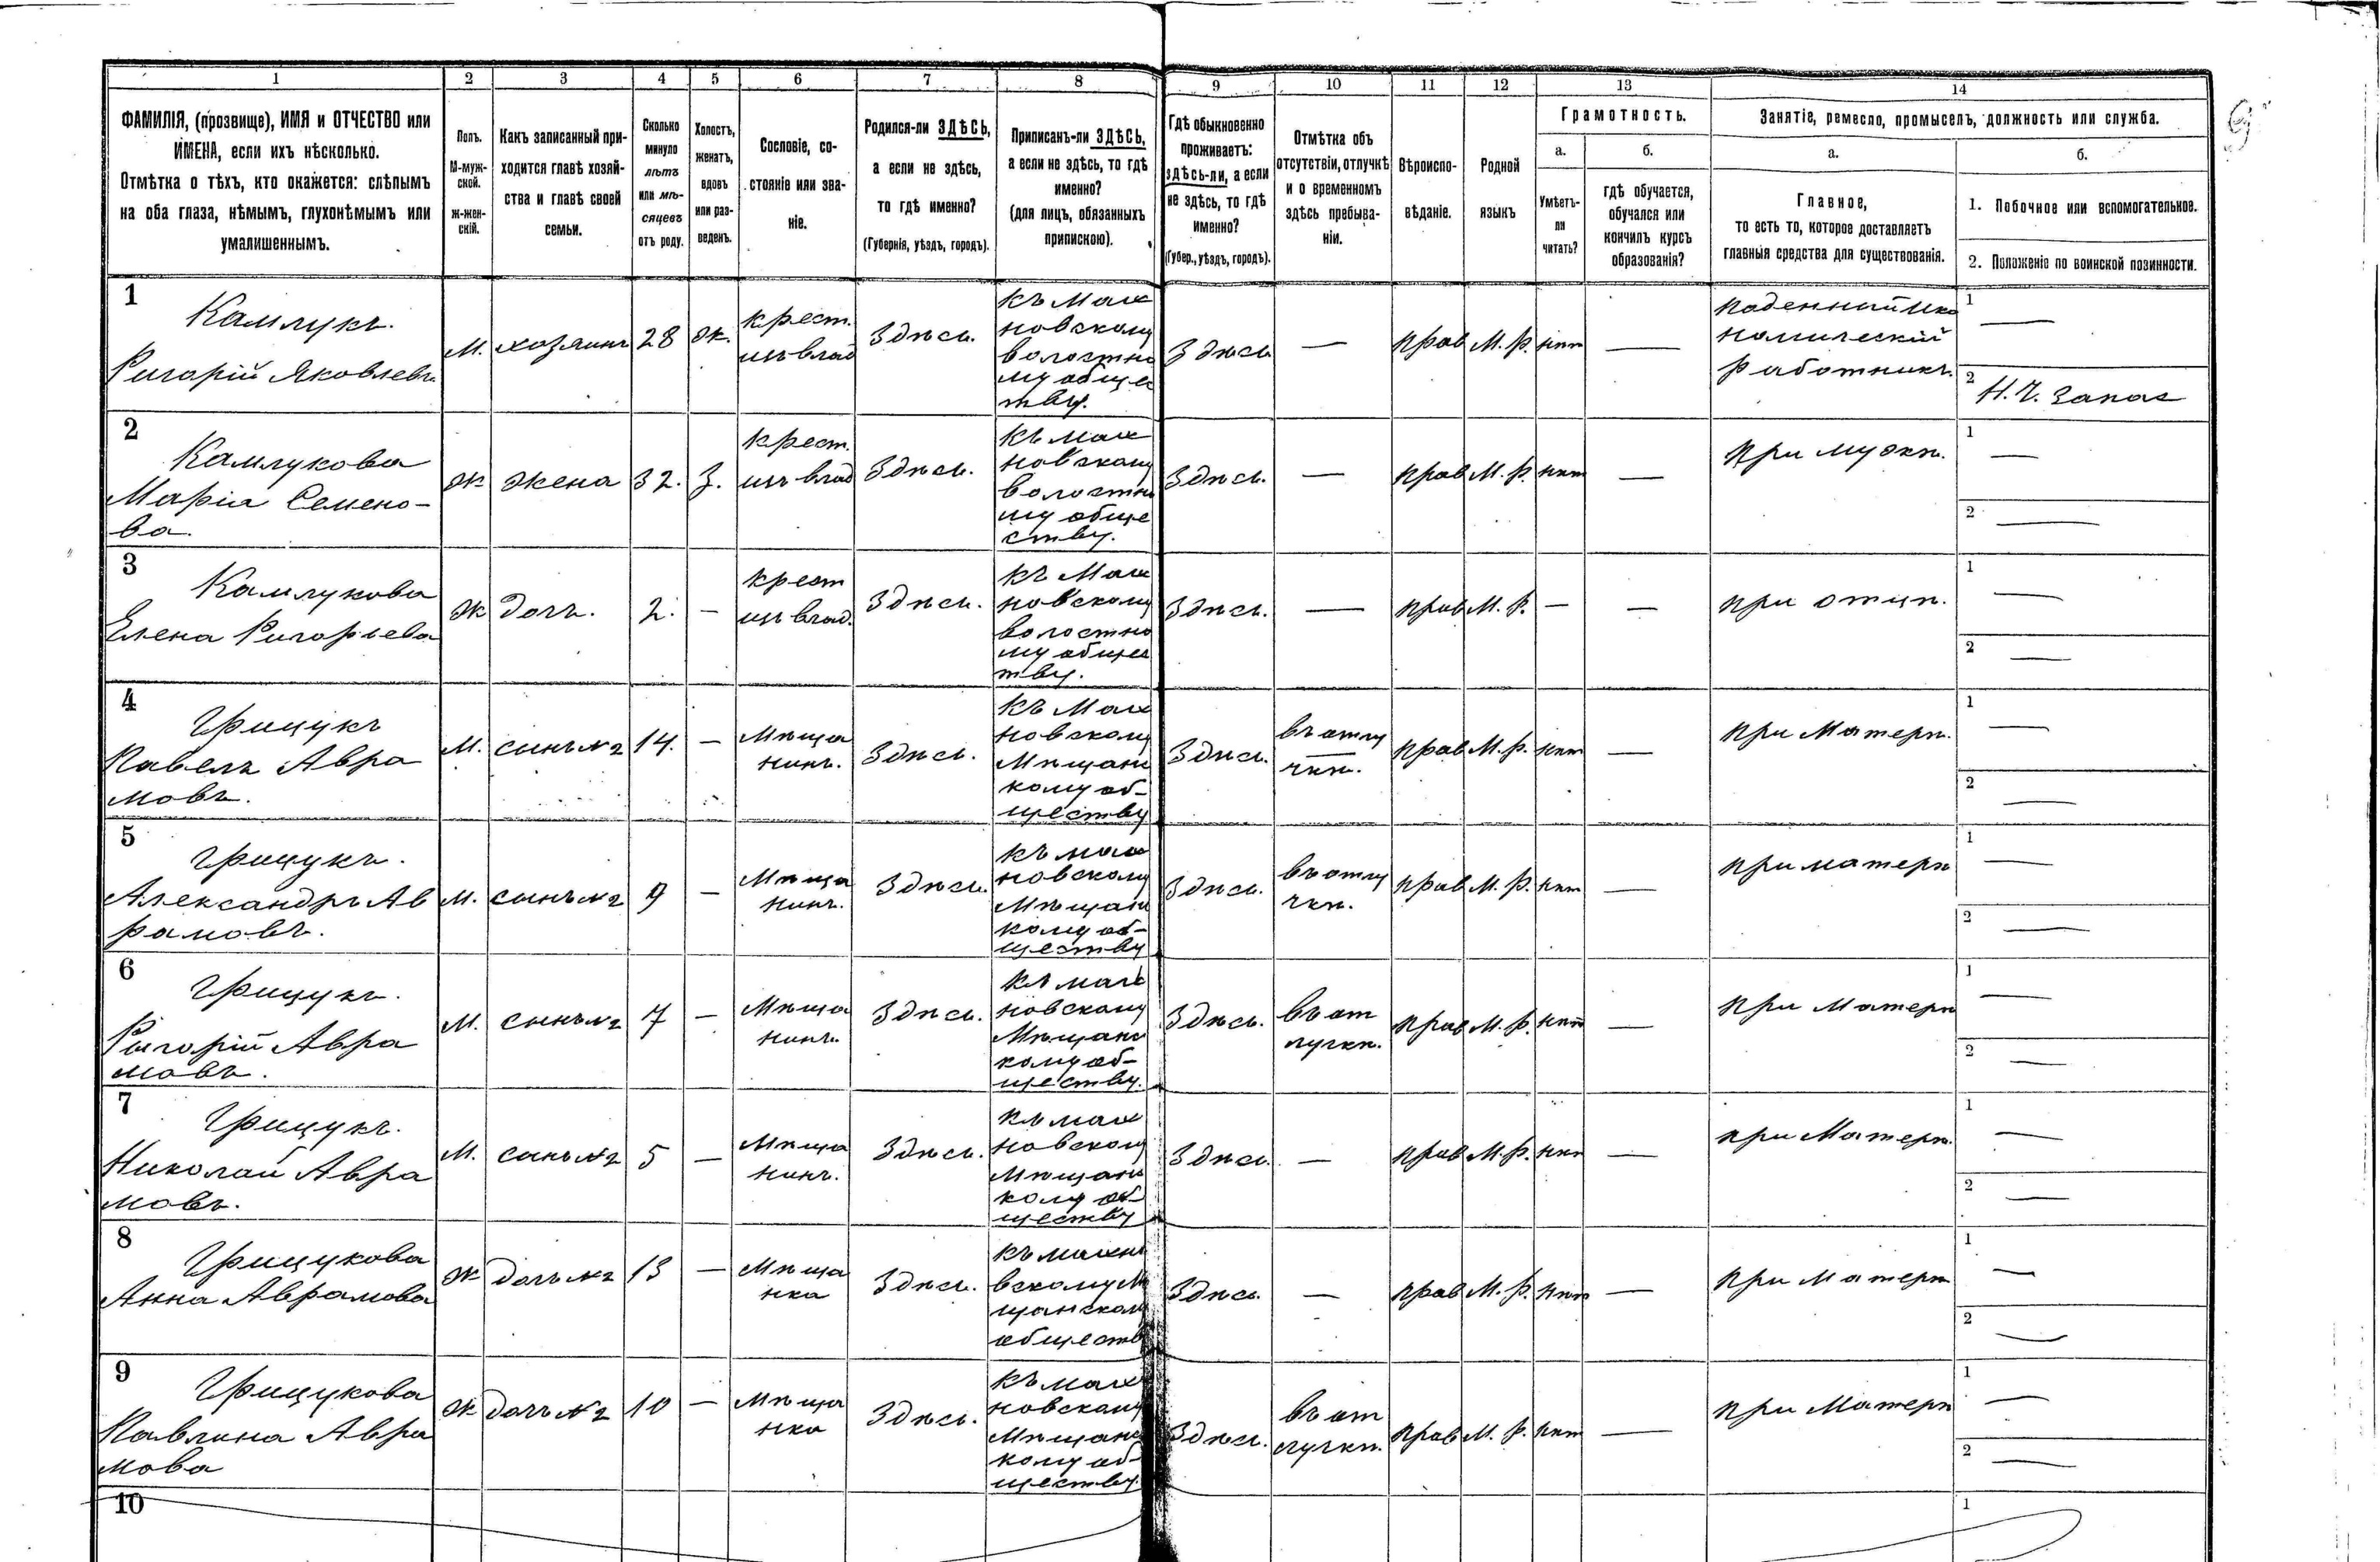 1 2 3 4 5 6 7 8 9 10 11 12 13 14
ФАМИЛІЯ, (прозвище), ИМЯ и ОТЧЕСТВО или
ИМЕНА, если ихъ нѣсколько.
Отмѣтка о тѣхъ, кто окажется: слѣпымъ
на оба глаза, нѣмымъ, глухонѣмымъ или
умалишеннымъ.
Полъ.
М-муж-
ской.
Ж-жен-
скій.
Какъ записанный при-
ходится главѣ хозяй-
ства и главѣ своей
семьи.
Сколько
минуло
лѣтъ
или мѣ-
сяцевъ
отъ роду.
Холостъ,
женатъ,
вдовъ
или раз-
веденъ.
Сословіе, со-
стояніе или зва-
ніе.
Родился-ли ЗДѢСЬ,
а если не здѣсь,
то гдѣ именно?
(Губернія, уѣздъ, городъ).
Приписанъ-ли ЗДѢСЬ,
а если не здѣсь, то гдѣ
именно?
(для лицъ, обязанныхъ
припискою).
Гдѣ обыкновенно
проживаетъ:
здѣсь-ли, а если
не здѣсь, то гдѣ
именно?
(Губер., уѣздъ, городъ).
Отмѣтка объ
отсутствіи, отлучкѣ
и о временномъ
здѣсь пребыва-
ніи.
Вѣроиспо-
вѣданіе.
Родной
языкъ
Грамотность.
а.
Умѣетъ-
ли
читать?
б.
гдѣ обучается,
обучался или
кончилъ курсъ
образованія?
Занятіе, ремесло, промыселъ, должность или служба.
а.
Главное,
то есть то, которое доставляетъ
главныя средства для существованія.
б.
1. Побочное или вспомогательное.
2. Положеніе по воинской повинности.
1
Камлукъ.
Григорій Яковлевъ
М.
хозяинъ
28
ж.
крест.
изъ влад
Здѣсь.
къ Мах
новскому
волостно
му общес
тву.
Здѣсь
—
прав
М. Р.
нѣт
—
поденный
номическій
работникъ.
1 —
2 Н. Ч. запас
2
Камлукова
Марія Семено-
ва.
ж
жена
32.
З.
крест.
изъ влад
Здѣсь.
къ мах
новскому
волостно
му обще
ству.
Здѣсь.
—
прав
М. Р.
нѣт
—
при мужѣ.
1 —
2 —
3
Камлукова
Елена Григорьева
ж
дочь.
2.
—
крест
изъ влад.
Здѣсь.
къ Мах
новскому
волостно
му общес
тву.
Здѣсь.
—
прав
М. Р.
—
—
при отцѣ.
1 —
2 —
4
Грицукъ
Павелъ Авра
мовъ.
М.
сынъ №2
14.
—
Мѣща
нинъ.
Здѣсь.
къ Мах
новскому
Мѣщанс
кому об-
ществу
Здѣсь.
въ отлу
чкѣ.
прав
М. Р.
нѣт
—
при Матери.
1 —
2 —
5
Грицукъ.
Александръ Ав
рамовъ.
М.
сынъ №2
9
—
Мѣща
нинъ.
Здѣсь.
къ мах
новскому
Мѣщанс
кому об-
ществу
Здѣсь.
въ отлу
чкѣ.
прав
М. Р.
нѣт
—
при матери
1 —
2 —
6
Грицукъ.
Григорій Авра
мовъ.
М.
сынъ №2
7
—
Мѣща
нинъ
Здѣсь.
къ мах
новскому
Мѣщанс
кому об-
ществу.
Здѣсь.
въ от
лучкѣ.
прав
М. Р.
нѣт
—
при Матери
1 —
2 —
7
Грицукъ.
Николай Авра
мовъ.
М.
сынъ №2
5
—
Мѣща
нинъ.
Здѣсь.
къ мах
новскому
Мѣщанс
кому об
ществу
Здѣсь.
—
прав
М. Р.
нѣт
—
при Матери.
1 —
2 —
8
Грицукова
Анна Аврамова
ж
дочь №2
13
—
Мѣща
нка
Здѣсь.
къ махно
вскому Мѣ
щанском
обществ
Здѣсь.
—
прав
М. Р.
нѣт
—
при Матери
1 —
2 —
9
Грицукова
Павлина Авра
мова
ж
дочь №2
10
—
Мѣща
нка
Здѣсь.
къ мах
новскому
Мѣщанс
кому об-
ществу.
Здѣсь.
въ от
лучкѣ.
прав
М. Р.
нѣт
—
при Матери
1 —
2 —
10
1